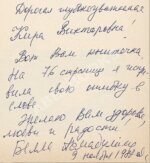 Дорогая глубокоуважаемая
Кира Викторовна!
Вот Вам книжечка
На 76 странице я испра-
вила свою ошибку в
слове.
Желаю Вам здоровья,
любви и радости!
Белла Ахмадулина
9 ноября